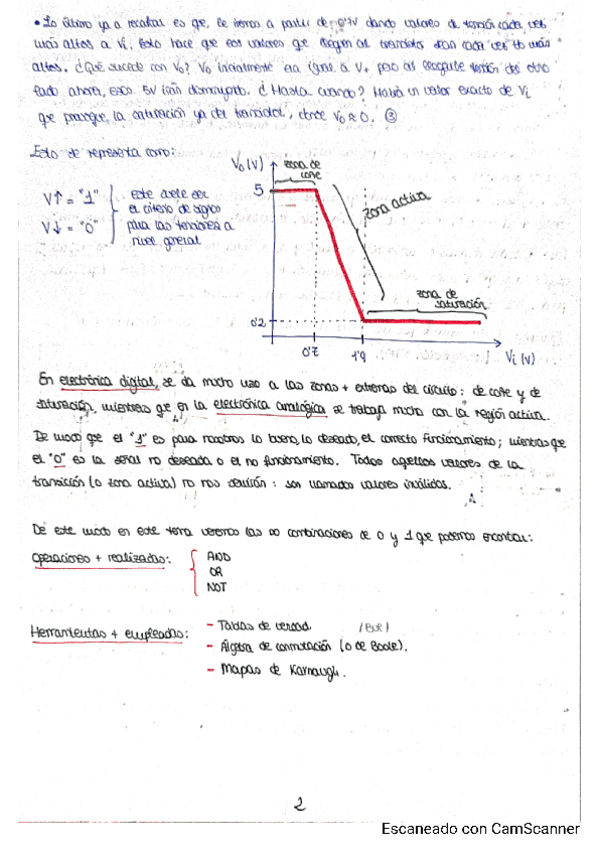 • Lo último ya a recalcar es que, le iremos a partir de 0'7V dando valores de tensión cada vez
más altos a Vi. Esto hace que esos valores que llegan al transistor sean cada vez + más
altos. ¿Qué sucede con Vo? Vo inicialmente era igual a V+ pero al tensión del otro
lado ahora, esos 5V irán disminuyendo. ¿Hasta cuando? Habrá un valor exacto de Vi
que provoque la saturación ya del transistor, donde Vo ≈ 0. ③
Esto se representa como:
V↑ = "1"
V↓ = "0"
este suele ser
el criterio de signos
para las tensiones a
nivel general
Vo (V)
zona de
corte
5
zona activa
zona de
saturación
0'2
0'7
1'9
Vi (V)
En electrónica digital, se da mucho uso a las zonas + extremas del circuito: de corte y de
saturación, mientras que en la electrónica analógica se trabaja mucho con la región activa.
De modo que el "1" es para nosotros lo bueno, lo deseado, el correcto funcionamiento; mientras que
el "0" es la señal no deseada o el no funcionamiento. Todos aquellos valores de la
transición (o zona activa) no nos servirán: son llamados valores inválidos.
De este modo en este tema veremos las ∞ combinaciones de 0 y 1 que podemos encontrar:
Operaciones + realizadas:
AND
OR
NOT
Herramientas + empleadas:
- Tablas de verdad.
- Álgebra de conmutación (o de Boole).
- Mapas de Karnaugh.
2
Escaneado con CamScanner